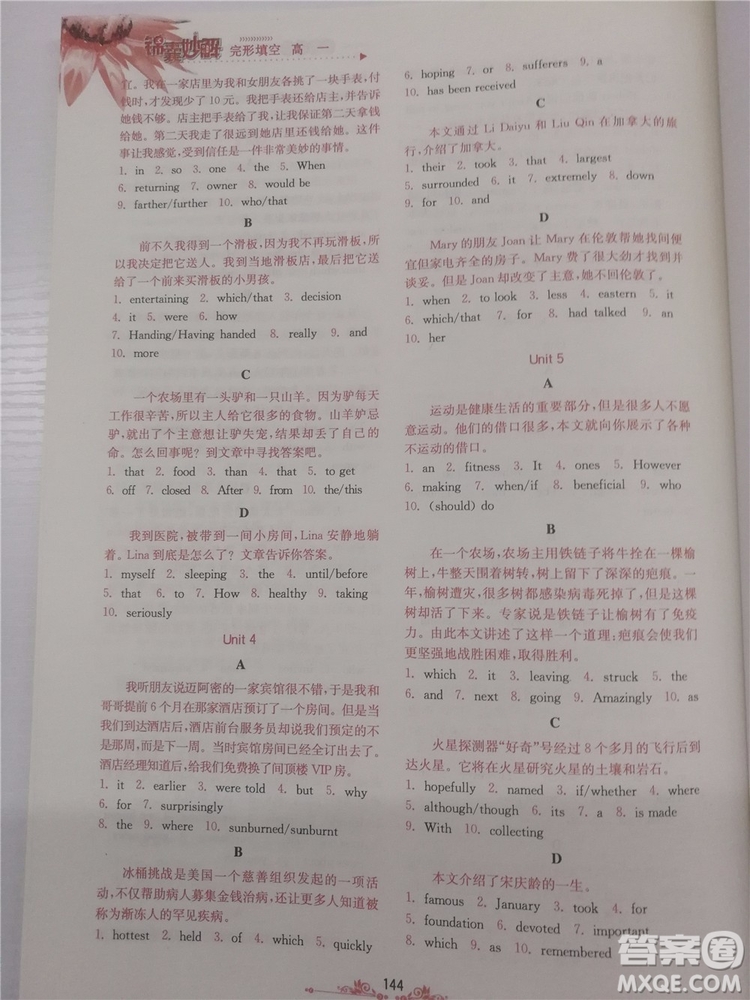 锦囊妙解 完形填空 高 一
宜。我在一家店里为我和女朋友各挑了一块手表,付
钱时,才发现少了 10 元。我把手表还给店主,并告诉
她钱不够。店主给了我,让我保证第二天拿钱
给她。第二天我走了很远到她店里还钱给她。这件
事让我感觉,受到信任是一件非常美妙的事情。
1. in 2. so 3. one 4. the 5. When
6. returning 7. owner 8. would be
9. farther/further 10. who/that
B
前不久我得到一个滑板,因为我不再玩滑板,所
以我决定把它送人。我到当地滑板店,最后把它送
给了一个前来买滑板的小男孩。
1. entertaining 2. which/that 3. decision
4. it 5. were 6. how
7. Handing/Having handed 8. really 9. and
10. more
C
一个农场里有一头驴和一只山羊。因为驴每天
工作很辛苦,所以主人给它很多的食物。山羊妒忌
驴,就出了个主意想让驴失宠,结果却丢了自己的性
命。怎么回事呢?到文章中寻找答案吧。
1. that 2. food 3. than 4. that 5. to get
6. off 7. closed 8. After 9. from 10. the/this
D
我到医院,被带到一间小房间,Lina 安静地躺
着。Lina 到底是怎么了?文章告诉你答案。
1. myself 2. sleeping 3. the 4. until/before
5. that 6. to 7. How 8. healthy 9. taking
10. seriously
Unit 4
A
我听朋友说迈阿密的一家宾馆很不错,于是我和
哥哥提前 6 个月在那家酒店预订了一个房间。但当
我们到达酒店后,酒店前台服务员却说我们预定的不
是那周,而是下一周。当时宾馆房间已经全订出去了。
酒店经理知道后,给我们免费换了间顶楼 VIP 房。
1. it 2. earlier 3. were told 4. but 5. why
6. for 7. surprisingly
8. the 9. where 10. sunburned/sunburnt
B
冰桶挑战是美国一个慈善组织发起的一项活
动,不仅帮助病人募集金钱治病,还让更多人知道被
称为渐冻人的罕见疾病。
1. hottest 2. held 3. of 4. which 5. quickly
6. hoping 7. or 8. sufferers 9. a
10. has been received
C
本文通过 Li Daiyu 和 Liu Qin 在加拿大的旅
行,介绍了加拿大。
1. their 2. took 3. that 4. largest
5. surrounded 6. it 7. extremely 8. down
9. for 10. and
D
Mary 的朋友 Joan 让 Mary 在伦敦帮她找间便
宜但家电齐全的房子。Mary 费了很大劲才找到并
谈妥。但是 Joan 却改变了主意,她不回伦敦了。
1. when 2. to look 3. less 4. eastern 5. it
6. which/that 7. for 8. had talked 9. an
10. her
Unit 5
A
运动是健康生活的重要部分,但是很多人不愿
意运动。他们的借口很多,本文就向你展示了各种
不运动的借口。
1. an 2. fitness 3. It 4. ones 5. However
6. making 7. when/if 8. beneficial 9. who
10. (should) do
B
在一个农场,农场主用铁链子将牛拴在一棵榆
树上,牛整天围着树转,树上留下了深深的疤痕。一
年,榆树遭灾,很多树感染病毒死掉了,但是这棵树
却活了下来。专家说是铁链子让榆树有了免疫
力。由此本文讲述了这样一个道理:疤痕会使我们
更坚强地战胜困难,取得胜利。
1. which 2. it 3. leaving 4. struck 5. the
6. and 7. next 8. going 9. Amazingly 10. as
C
火星探测器“好奇”号经过 8 个多月的飞行后到
达火星。它将在火星研究火星的土壤和岩石。
1. hopefully 2. named 3. if/whether 4. where
5. although/though 6. its 7. a 8. is made
9. With 10. collecting
D
本文介绍了宋庆龄的一生。
1. famous 2. January 3. took 4. for
5. foundation 6. devoted 7. to
8. which 9. as 10. remembered
144
答案圈
MXQE.COM